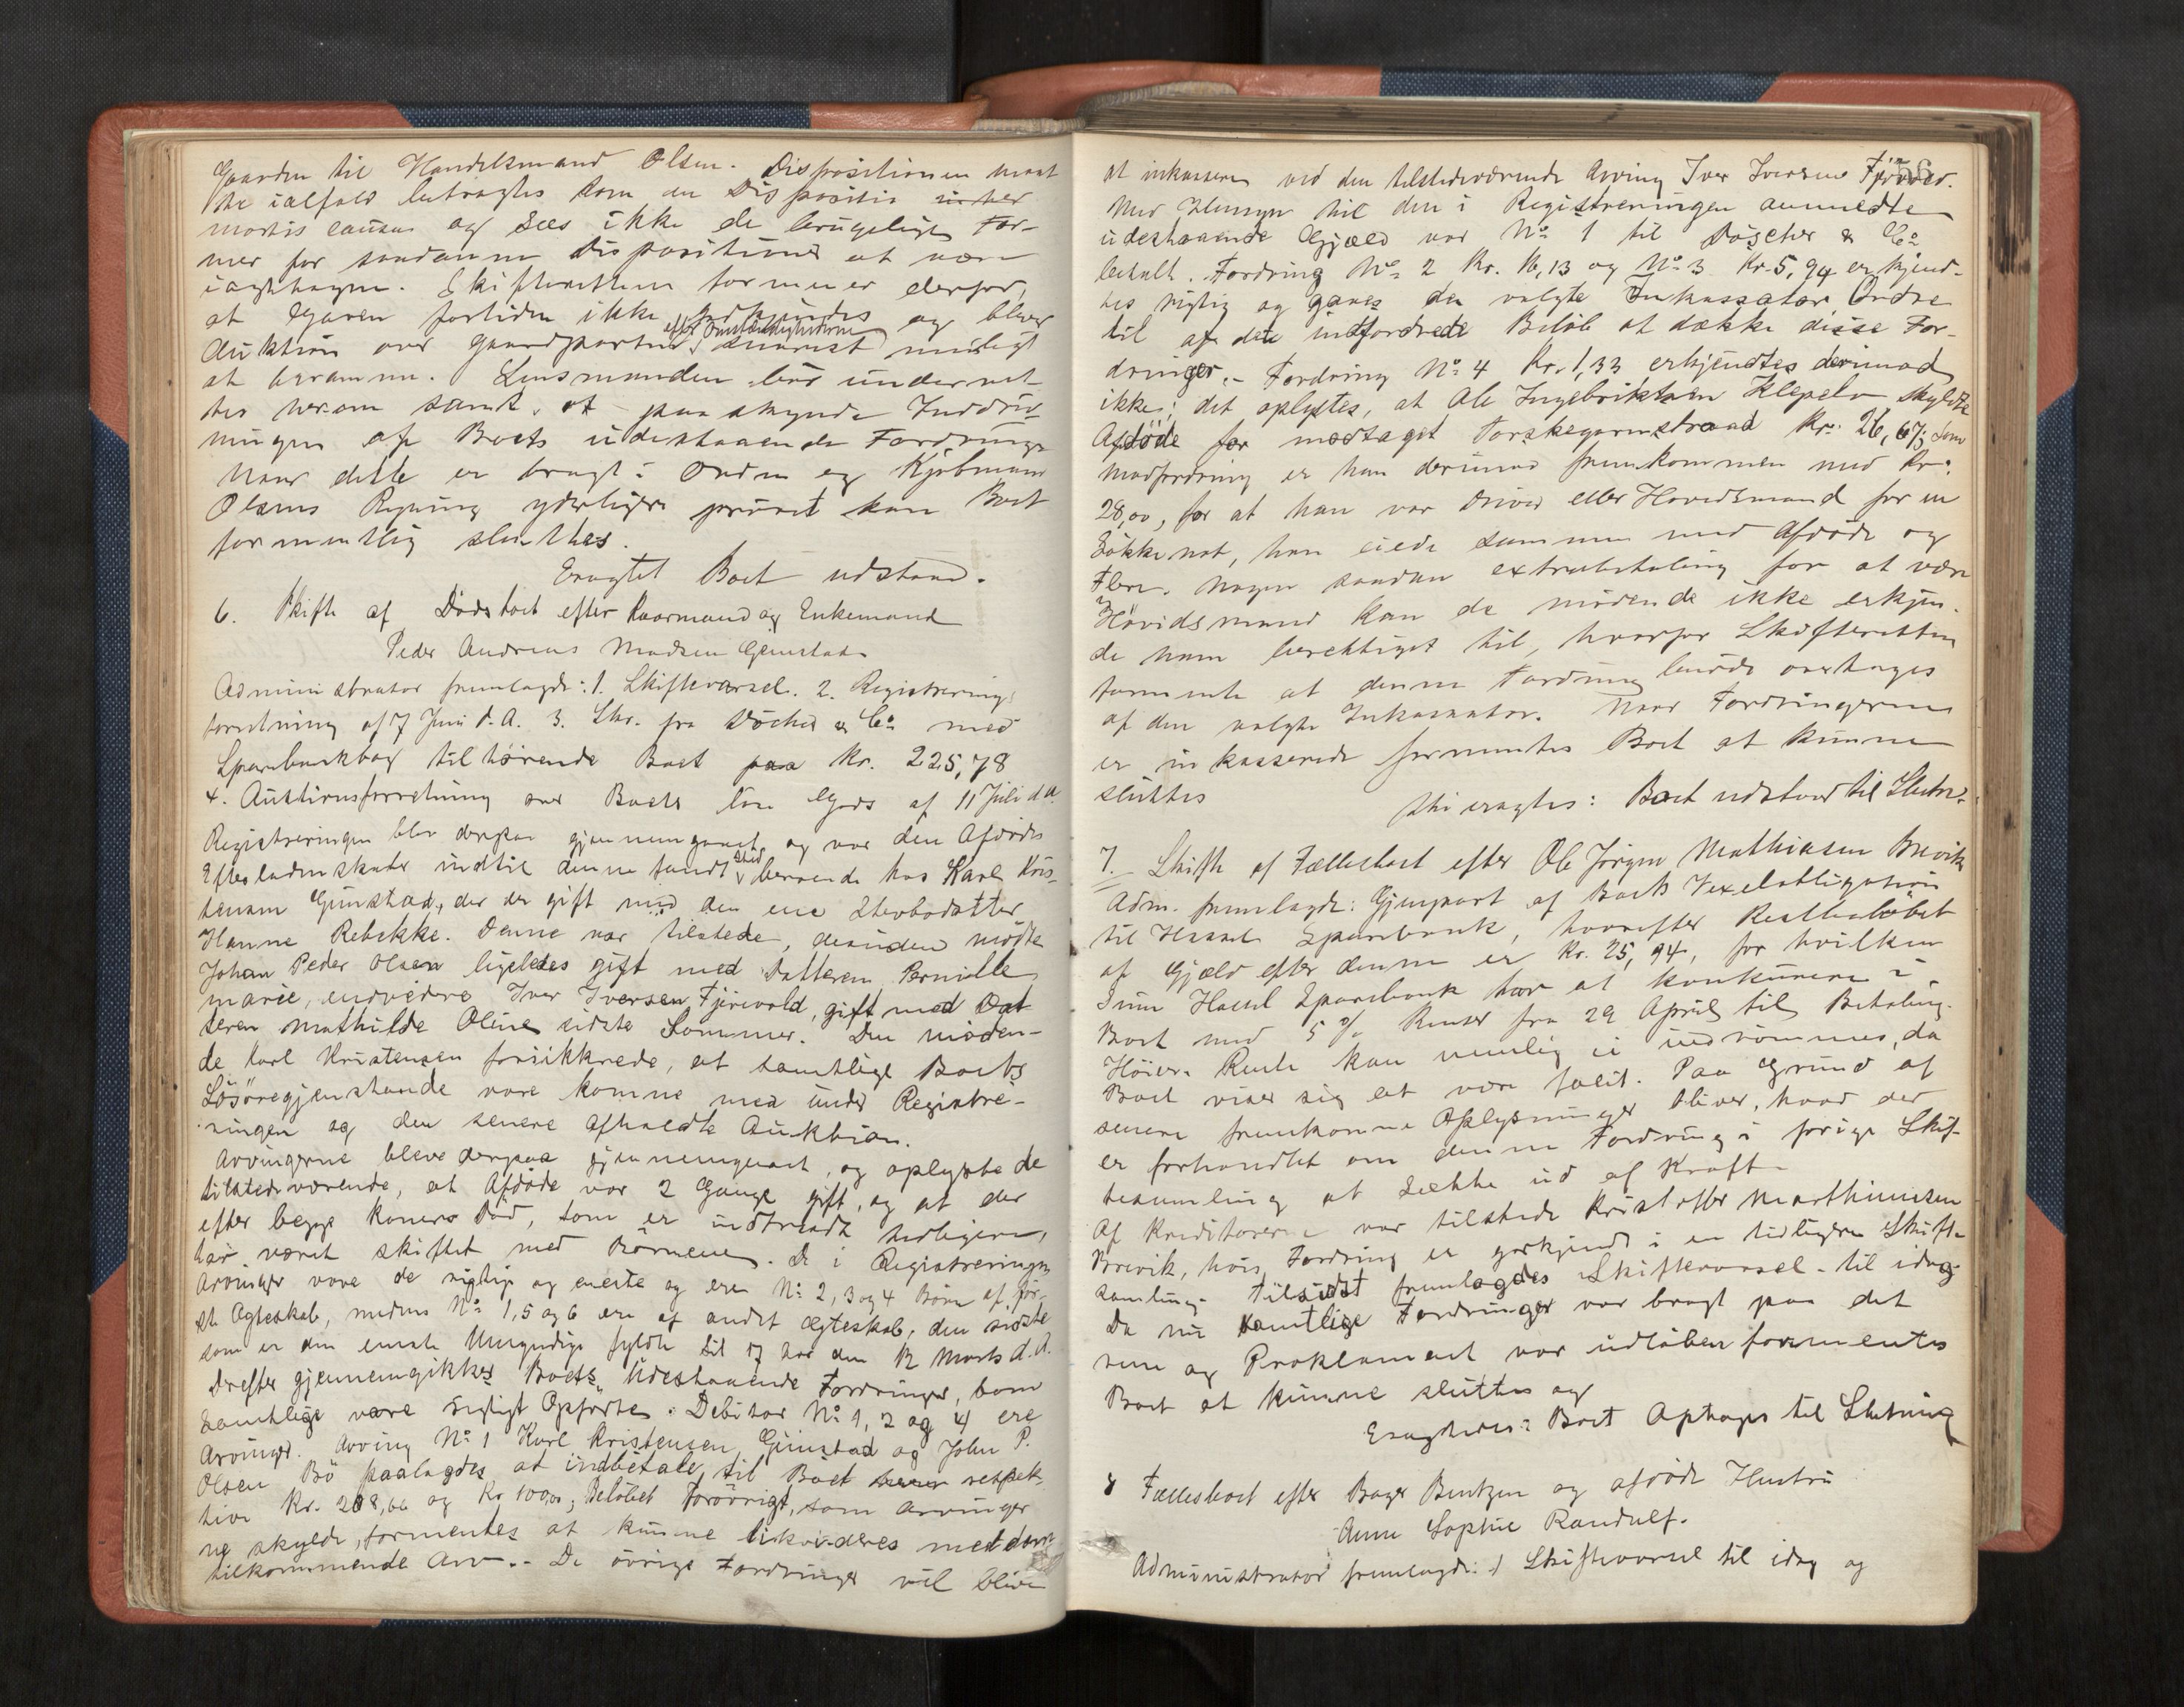 Gaarden til Handelsmand Olsen. Dispositionen maat
te ialfald betragtes som en Dispositio inter
mortis causa og sees ikke de brugelige For-
mer for saadanne Dispositioner at være
iagttagne. Skifteretten formener derfor,
at Gaven fortiden ikke godkjendes og bliver
efter Omstændighederne
Auktion over Gaardparten snarest muligt
at beramme. Lensmanden bør underret-
tes herom samt, at paaskynde Inddriv-
ningen af Boets udestaaende Fordringer
Naar dette er bragt i Orden og Kjøbmand
Olsens Regning yderligere prøvet kan Boet
formentlig sluttes.
Eragtet Boet udstaar.
6. Skifte af Dødsboet efter Kaarmand og Enkemand
Peder Andreas Madsen Gunstad.
Administrator fremlagde: 1. Skiftevarsel. 2. Registrerings
forretning af 7 Juni d.A. 3. Skr. fra Döscher & Co med
Sparebankbog tilhørende Boet paa Kr. 225,78
4. Auktionsforretning over Boets löse Gods af 11 Juli d.A.
Registreringen blev derpaa gjennemgaaet, og var den Afdødes
Sted
Efterladenskaber indtil denne fandt beroende hos Karl Kris-
tensen Gunstad, der er gift med den ene Stevbodatter
Hanne Rebekke. Denne var tilstede, desuden mødte
Johan Peder Olsen ligeledes gift med Datteren Pernille
Marie, endvidere Iver Iversen Fjærvold, gift med Dat
teren Mathilde Oline sidste Sommer. Den møden-
de Karl Kristensen forsikkrede, at samtlige Boets
Løsøregjenstande vare komne med under Registre-
ringen og den senere afholdte Auktion.
Arvingerne bleve derpaa gjennemgaaet, og oplyste de
tilstedeværende, at Afdøde var 2 Gange gift, og at der
efter begge Koners Död, som er indtraadt tidligere,
har været skiftet med Börnene. De i Registreringen
Arvinger vare de rigtige og eneste og ere No 2, 3 og 4 Børn af för-
ste Ægteskab, medens No 1, 5 og 6 ere af andet Ægteskab, den sidste
som er den eneste Umyndige fyldte til 17 Aar den 12 Marts d.A.
Derefter gjennemgikkes Boets Udestaaende Fordringer, som
samtlige vare rigtigt Opførte. Debitor No 1, 2 og 4 ere
Arvinger. Arving No 1 Karl Kristensen Gunstad og John P.
Olsen Bö paalagdes at indbetale til Boet respek-
tive Kr. 208,66 og Kr 100,00; Beløbet forøvrigt, som Arvinger
ne skylde, formentes at kunne likvideres med den
tilkommende Arv. - De øvrige Fordringer vil blive
at inkassere ved den tilstedeværende Arving Iver Iversen Fjærvold.
Med Hensyn til den i Registreringen anmeldte
udestaaende Gjæld var No 1 til Döscher & Co
betalt. Fordring No 2 Kr. 16,13 og No 3 Kr. 5,94 erkjend-
tes rigtig og gaves den valgte Inkassator Ordre
til af det indfordrede Beløb at dække disse For-
dringer. - Fordring No 4 Kr. 1,33 erkjendtes derimod
ikke; det oplystes, at Ole Ingebriktsen Klepelv skyldte
Afdøde for modtaget Torskegarnstraad Kr. 26,67; som
Modfordring er han derimod fremkommen med Kr.
28,00, for at han var Driver eller Hovedsmand for en
Søkkenot, han eiede sammen med Afdøde og
Flere. Nogen saadan extrabetaling for at være
Høvidsmand kan de mødende ikke erkjen-
de ham berettiget til, hvorfor Skifteretten
formente at denne Fordring burde overtages
af den valgte Inkassator. Naar Fordringerne
er inkasserede formentes Boet at kunne
sluttes
Thi eragtes: Boet udstaar til Slutn.
7. Skifte af Fællesboet efter Ole Jørgen Mathiasen Brevik
Adm. fremlagde: Gjenpart af Boets Vexelobligation
til Hassel Sparebank, hvorefter Restbeløbet
af Gjæld efter denne er Kr. 25,94, for hvilken
Sum Hassel Sparebank har at konkurere i
Boet med 5% Renter fra 29 April til Betaling.
Høiere Rente kan nemlig ei indrømmes, da
Boet viser sig at være falit. Paa Grund af
senere fremkomne Oplysninger bliver, hvad der
er forhandlet om denne Fordring i forrige Skif-
tesamling at sætte ud af Kraft.
Af Kreditorerne var tilstede Kristoffer Marthinusen
Brevik, hvis Fordring er godkjendt i en tidligere Skifte
samling. Tilsidst fremlagdes Skiftevarsel til idag.
Da nu samtlige Fordringer var bragt paa det
rene og Proklamaet var udløben formentes
Boet at kunne sluttes og
Eragtedes: Boet Optages til Slutning
8 Fællesboet efter Bager Bentzen og afdøde Hustru
Anne Sophie Randulf.
Administrator fremlagde: 1 Skiftevarsel til idag og